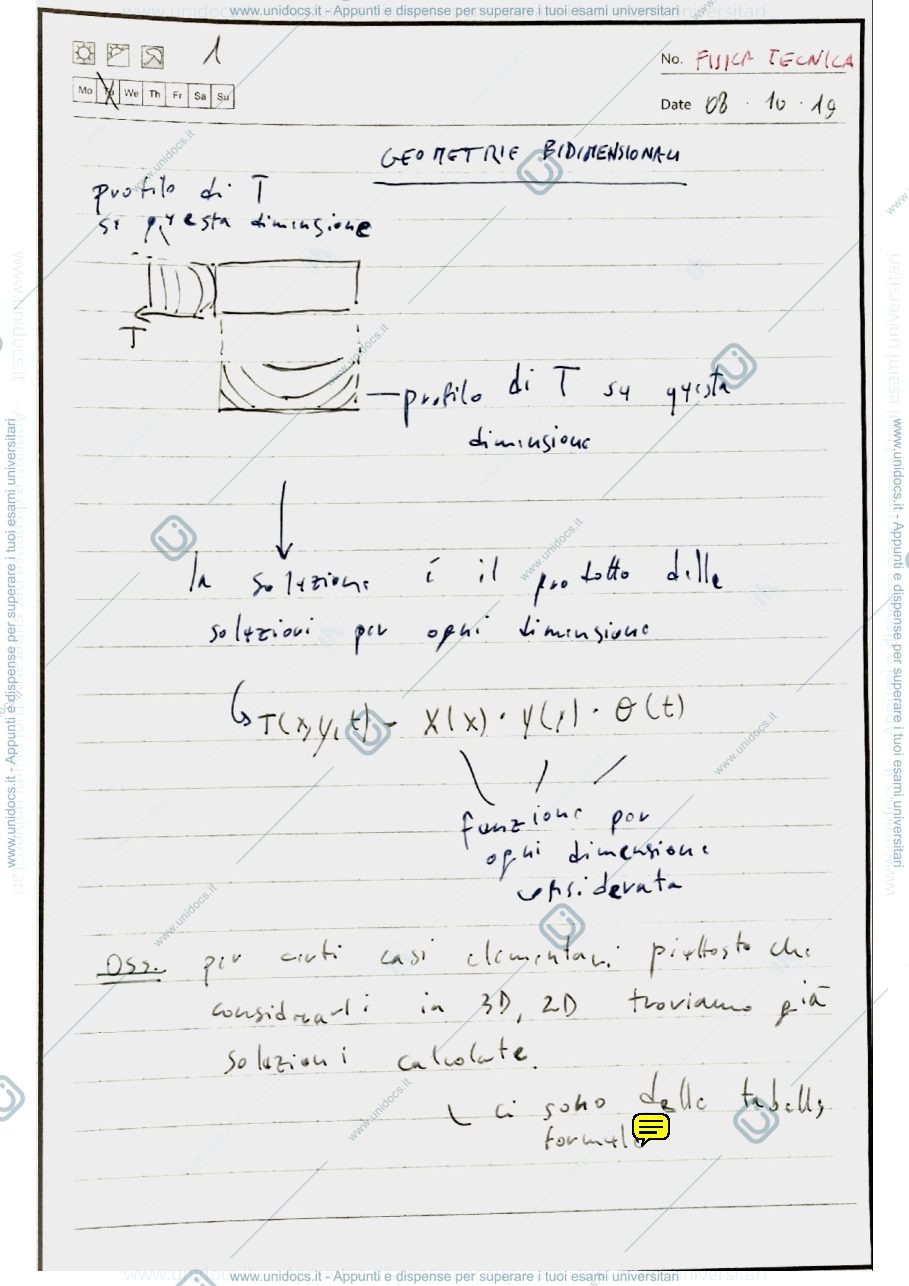 www.unidocs.it - Appunti e dispense per superare i tuoi esami universitari
1
No. FISICA TECNICA
Mo Tu We Th Fr Sa Su
Date 08 . 10 . 19
GEOMETRIE BIDIMENSIONALI
profilo di T
su questa dimensione
T
profilo di T su questa
dimensione
la soluzione è il prodotto delle
soluzioni per ogni dimensione
T(x,y,t) = X(x) · Y(y) · θ(t)
funzione per
ogni dimensione
considerata
Oss. per certi casi elementari piuttosto che
considerarli in 3D, 2D troviamo già
soluzioni calcolate.
ci sono delle tabelle,
formule
www.unidocs.it - Appunti e dispense per superare i tuoi esami universitari
www.unidocs.it - Appunti e dispense per superare i tuoi esami universitari
www.unidocs.it - Appunti e dispense per superare i tuoi esami universitari